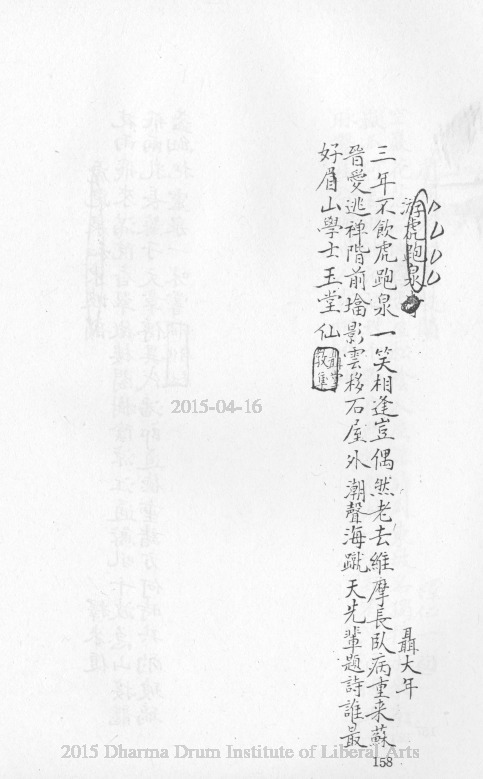 游虎跑泉
聶大年
三年不飲虎跑泉一笑相逢豈偶然老去維摩長臥病重来蘇
晉愛逃禅階前墖影雲移石屋外潮聲海蹴天先輩題詩誰最
好眉山學士玉堂仙
2015-04-16
158
2015 Dharma Drum Institute of Liberal Arts